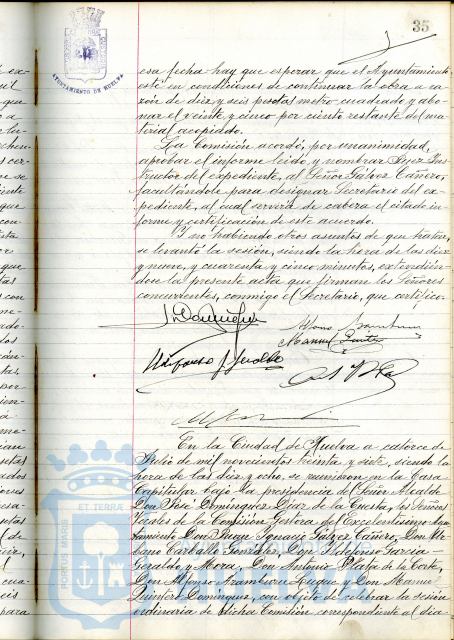 35
AYUNTAMIENTO DE HUELVA
esa fecha hay que esperar que el Ayuntamiento
esté en condiciones de continuar la obra a ra-
zón de diez y seis pesetas metro cuadrado y abo-
nar el veinte y cinco por ciento restante del ma-
terial acopiado.
La Comisión acordó, por unanimidad,
aprobar el informe leído y nombrar Juez Ins-
tructor del expediente, al Señor Gálvez Cañero,
facultándole para designar Secretario del ex-
pediente, al cual servirá de cabeza el citado in-
forme y certificación de este acuerdo.
Y no habiendo otros asuntos de que tratar,
se levantó la sesión, siendo la hora de las diez
y nueve, y cuarenta y cinco minutos, extendién-
dose la presente acta que firman los Señores
concurrentes, conmigo el Secretario, que certifico.
En la Ciudad de Huelva a catorce de
Julio de mil novecientos treinta y siete, siendo la
hora de las diez y ocho, se reunieron en la Casa
Capitular bajo la presidencia del Señor Alcalde
Don José Domínguez Díaz de la Cuesta, los Señores
Vocales de la Comisión Gestora del Excelentísimo Ayun-
tamiento, Don Juan Ignacio Gálvez Cañero, Don Ur-
bano Carballo González, Don Ildefonso García
Geraldo y Mora, Don Antonio Plata de la Corte,
Don Alfonso Aramburu Luque y Don Manuel
Quintero Domínguez, con objeto de celebrar la sesión
ordinaria de dicha Comisión correspondiente al día
PORTUS MARIS
ET TERRÆ